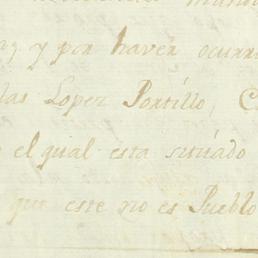 y por haver ocurr
las Lopez Portillo, C
el qual esta situado
que este no es Pueblo